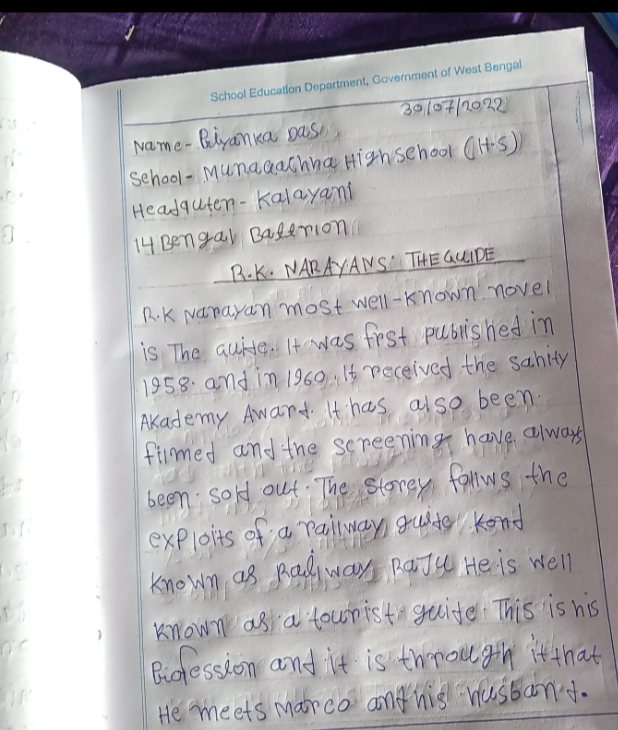 School Education Department, Government of West Bengal
30/07/2022
Name - Priyanka Das
School - Munagachha High school (H.S)
Headquter - Kalayani
14 Bengal Batterion
R.K. NARAYANS' THE GUIDE
R.K Narayan most well-known novel
is The guide. It was frst published in
1958. and in 1960. It received the Sahity
Akademy Award. It has also been.
filmed and the screening have always
been. sold out. The Storey follws the
exploits of a railway guide kond
known as Railway Raju He is well
known as a tourist guide. This is his
Profession and it is through it that
He meets Marco and his husband.